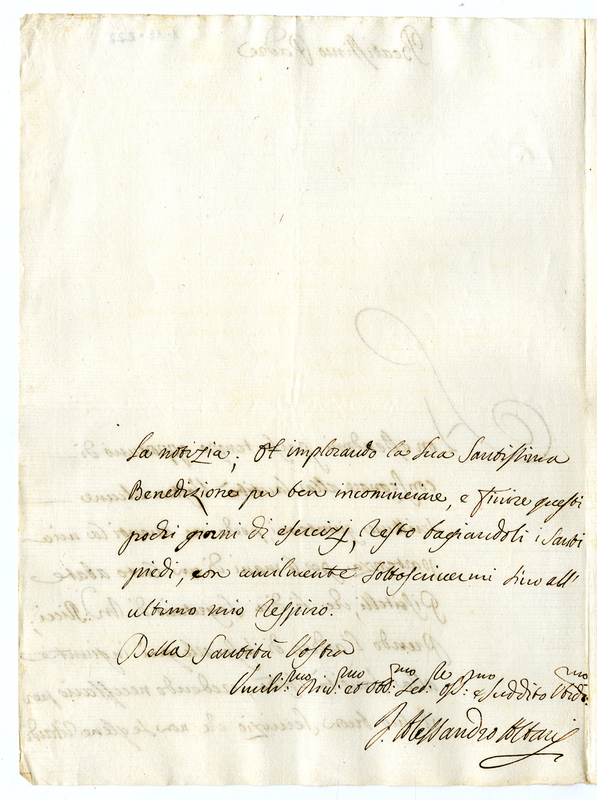 la notizia, et implorando la sua Santissima
Benedizione per ben incominciare, e finire questi
pochi giorni di esercizj, resto bagiandoli i Santi
piedi, con umilmente sottoscrivermi sino all'
ultimo mio respiro.
Della Santità Vostra
Umil:mo Div:mo ed Obb:mo e suddito
F. Alessandro